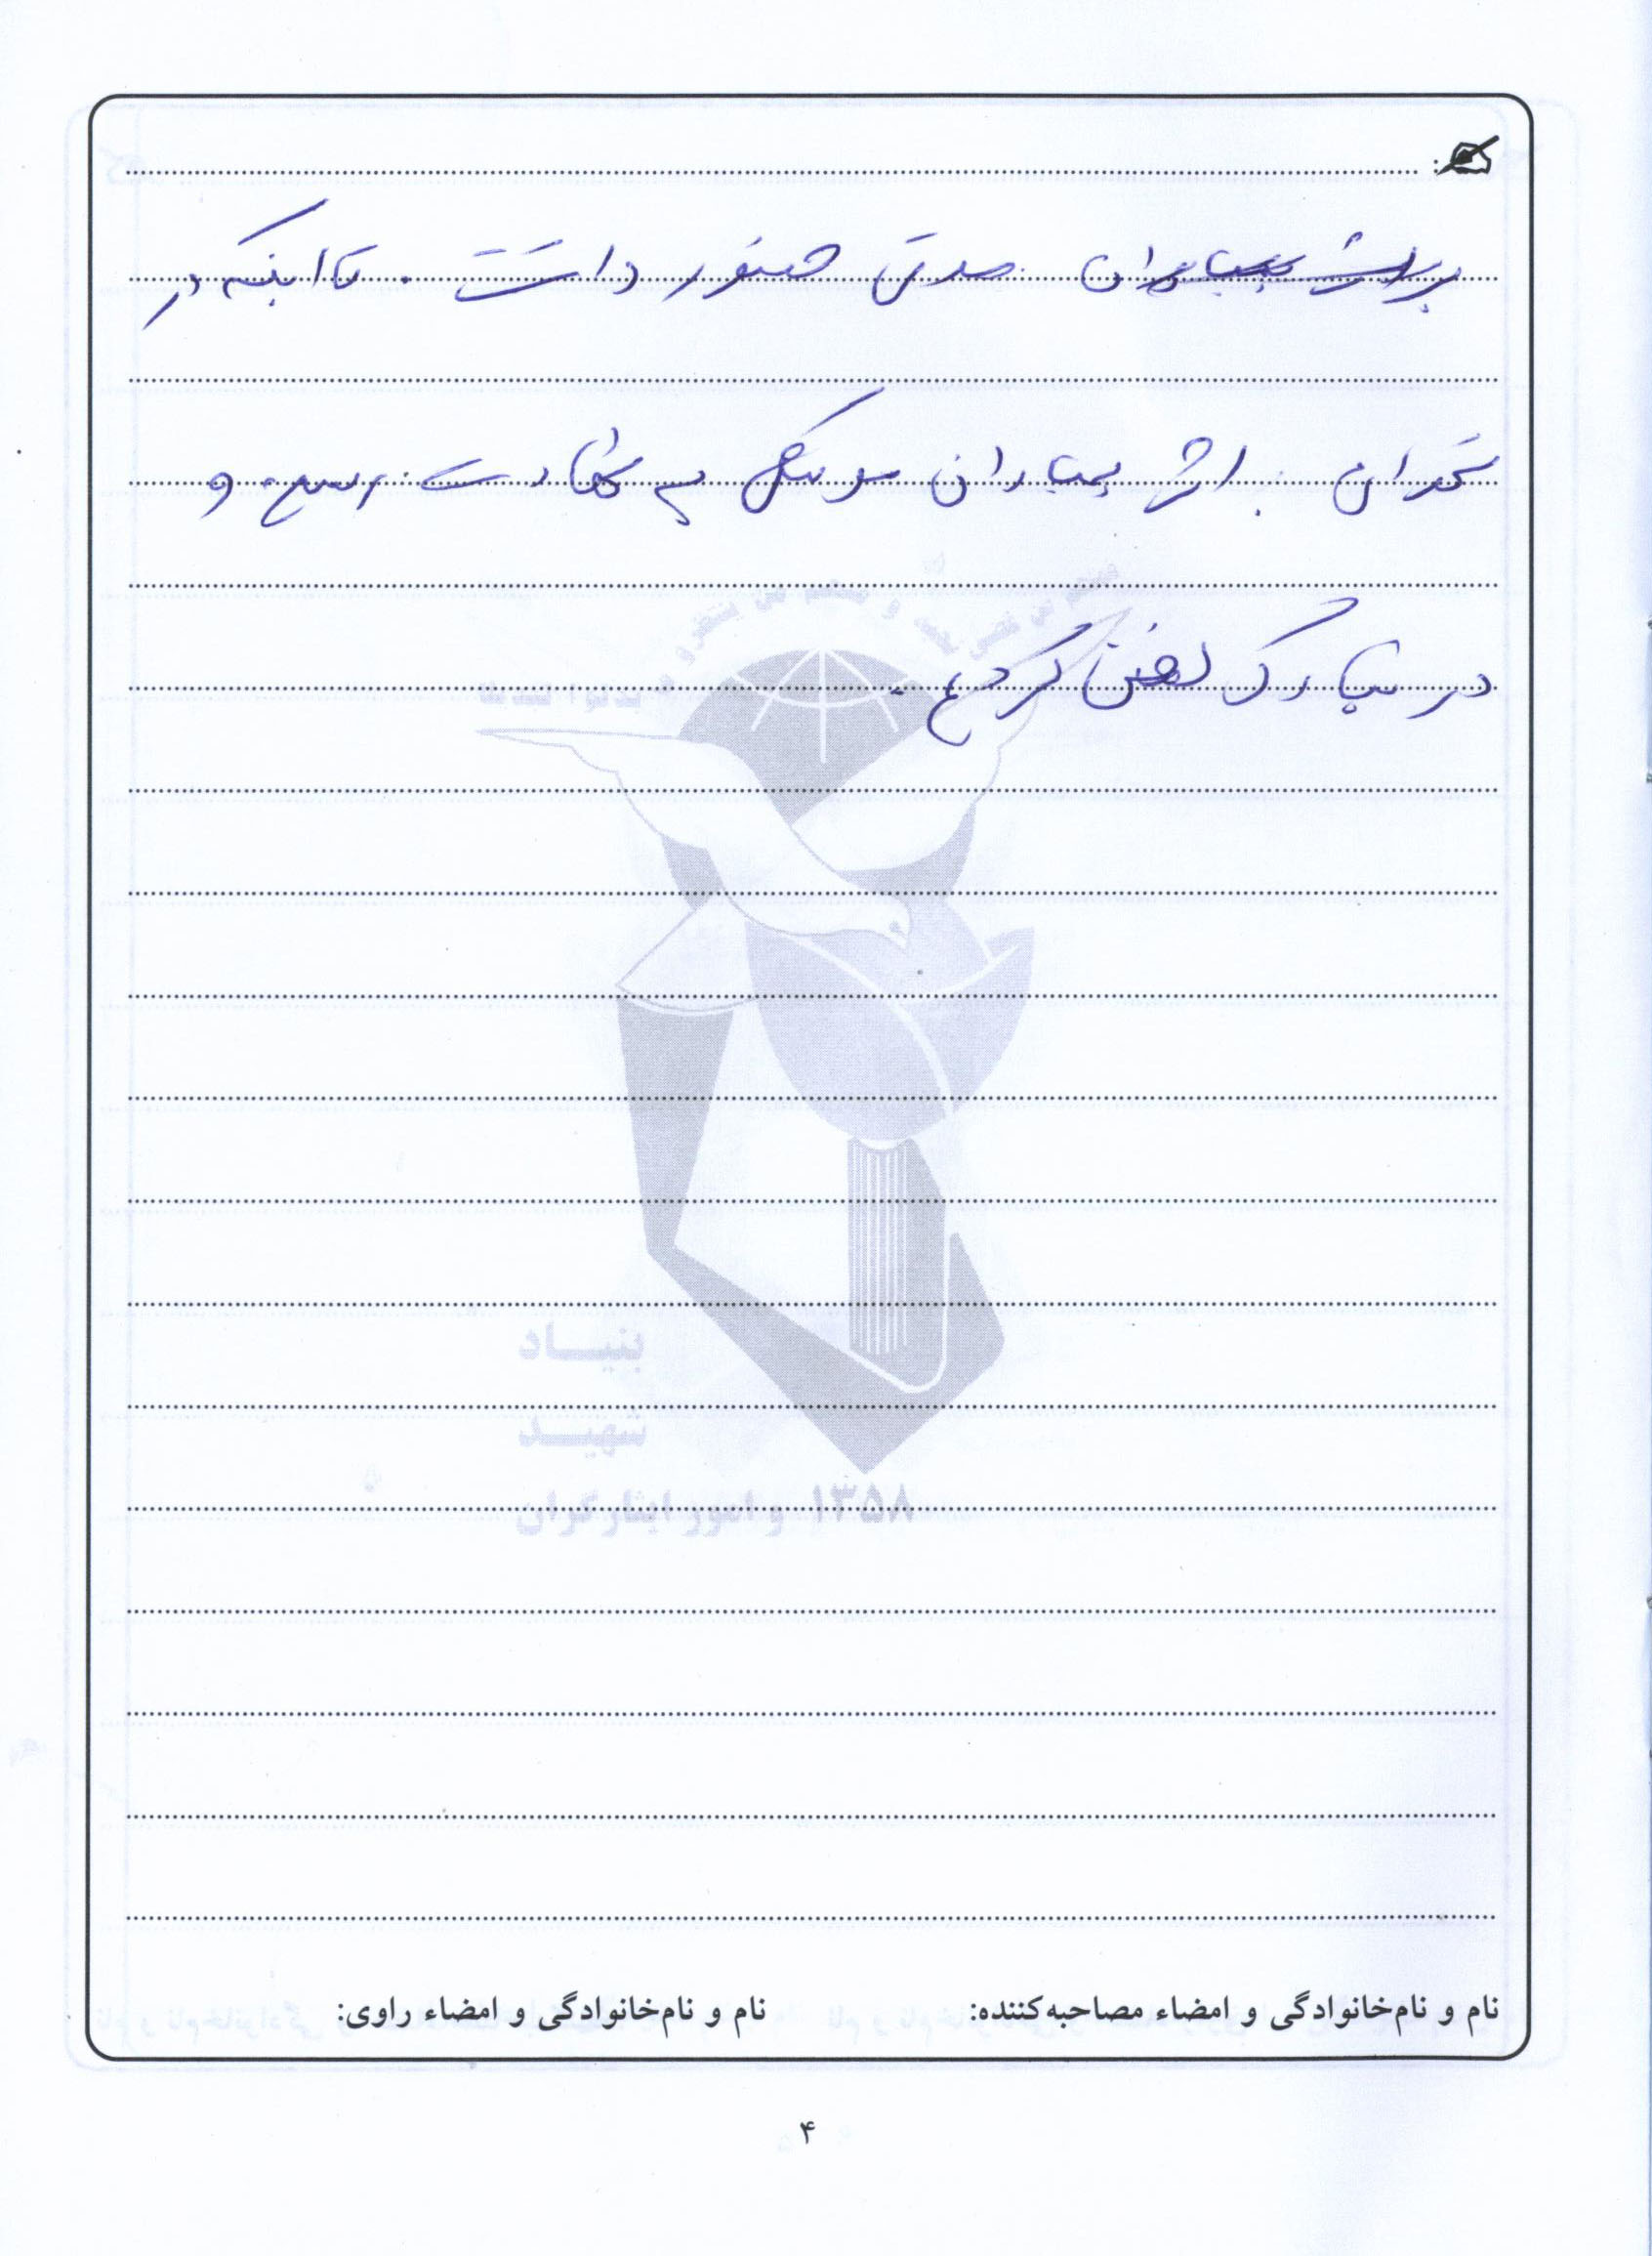 مدتی حضور داشت. تا اینکه در
تهران بر اثر بمباران موشکی به شهادت رسید و
در کردیم.
بنیاد
شهید
و امور ایثارگران ۱۳۵۸
نام و نام‌خانوادگی و امضاء مصاحبه‌کننده: نام و نام‌خانوادگی و امضاء راوی:
۴